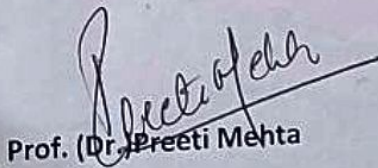 Preeti Mehta
Prof. (Dr.)Preeti Mehta